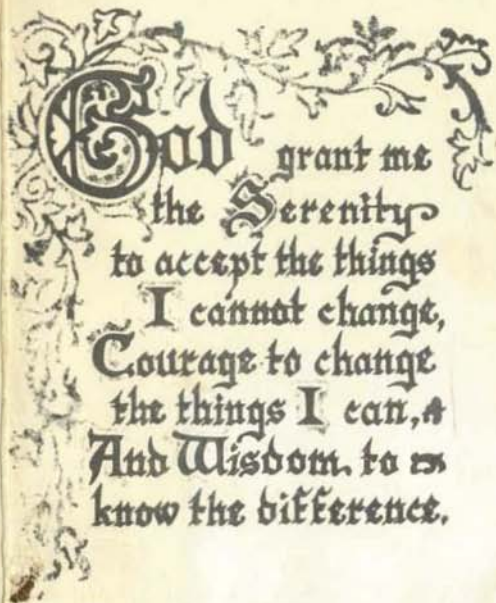 God grant me
the Serenity
to accept the things
I cannot change,
Courage to change
the things I can,
And Wisdom. to
know the difference.